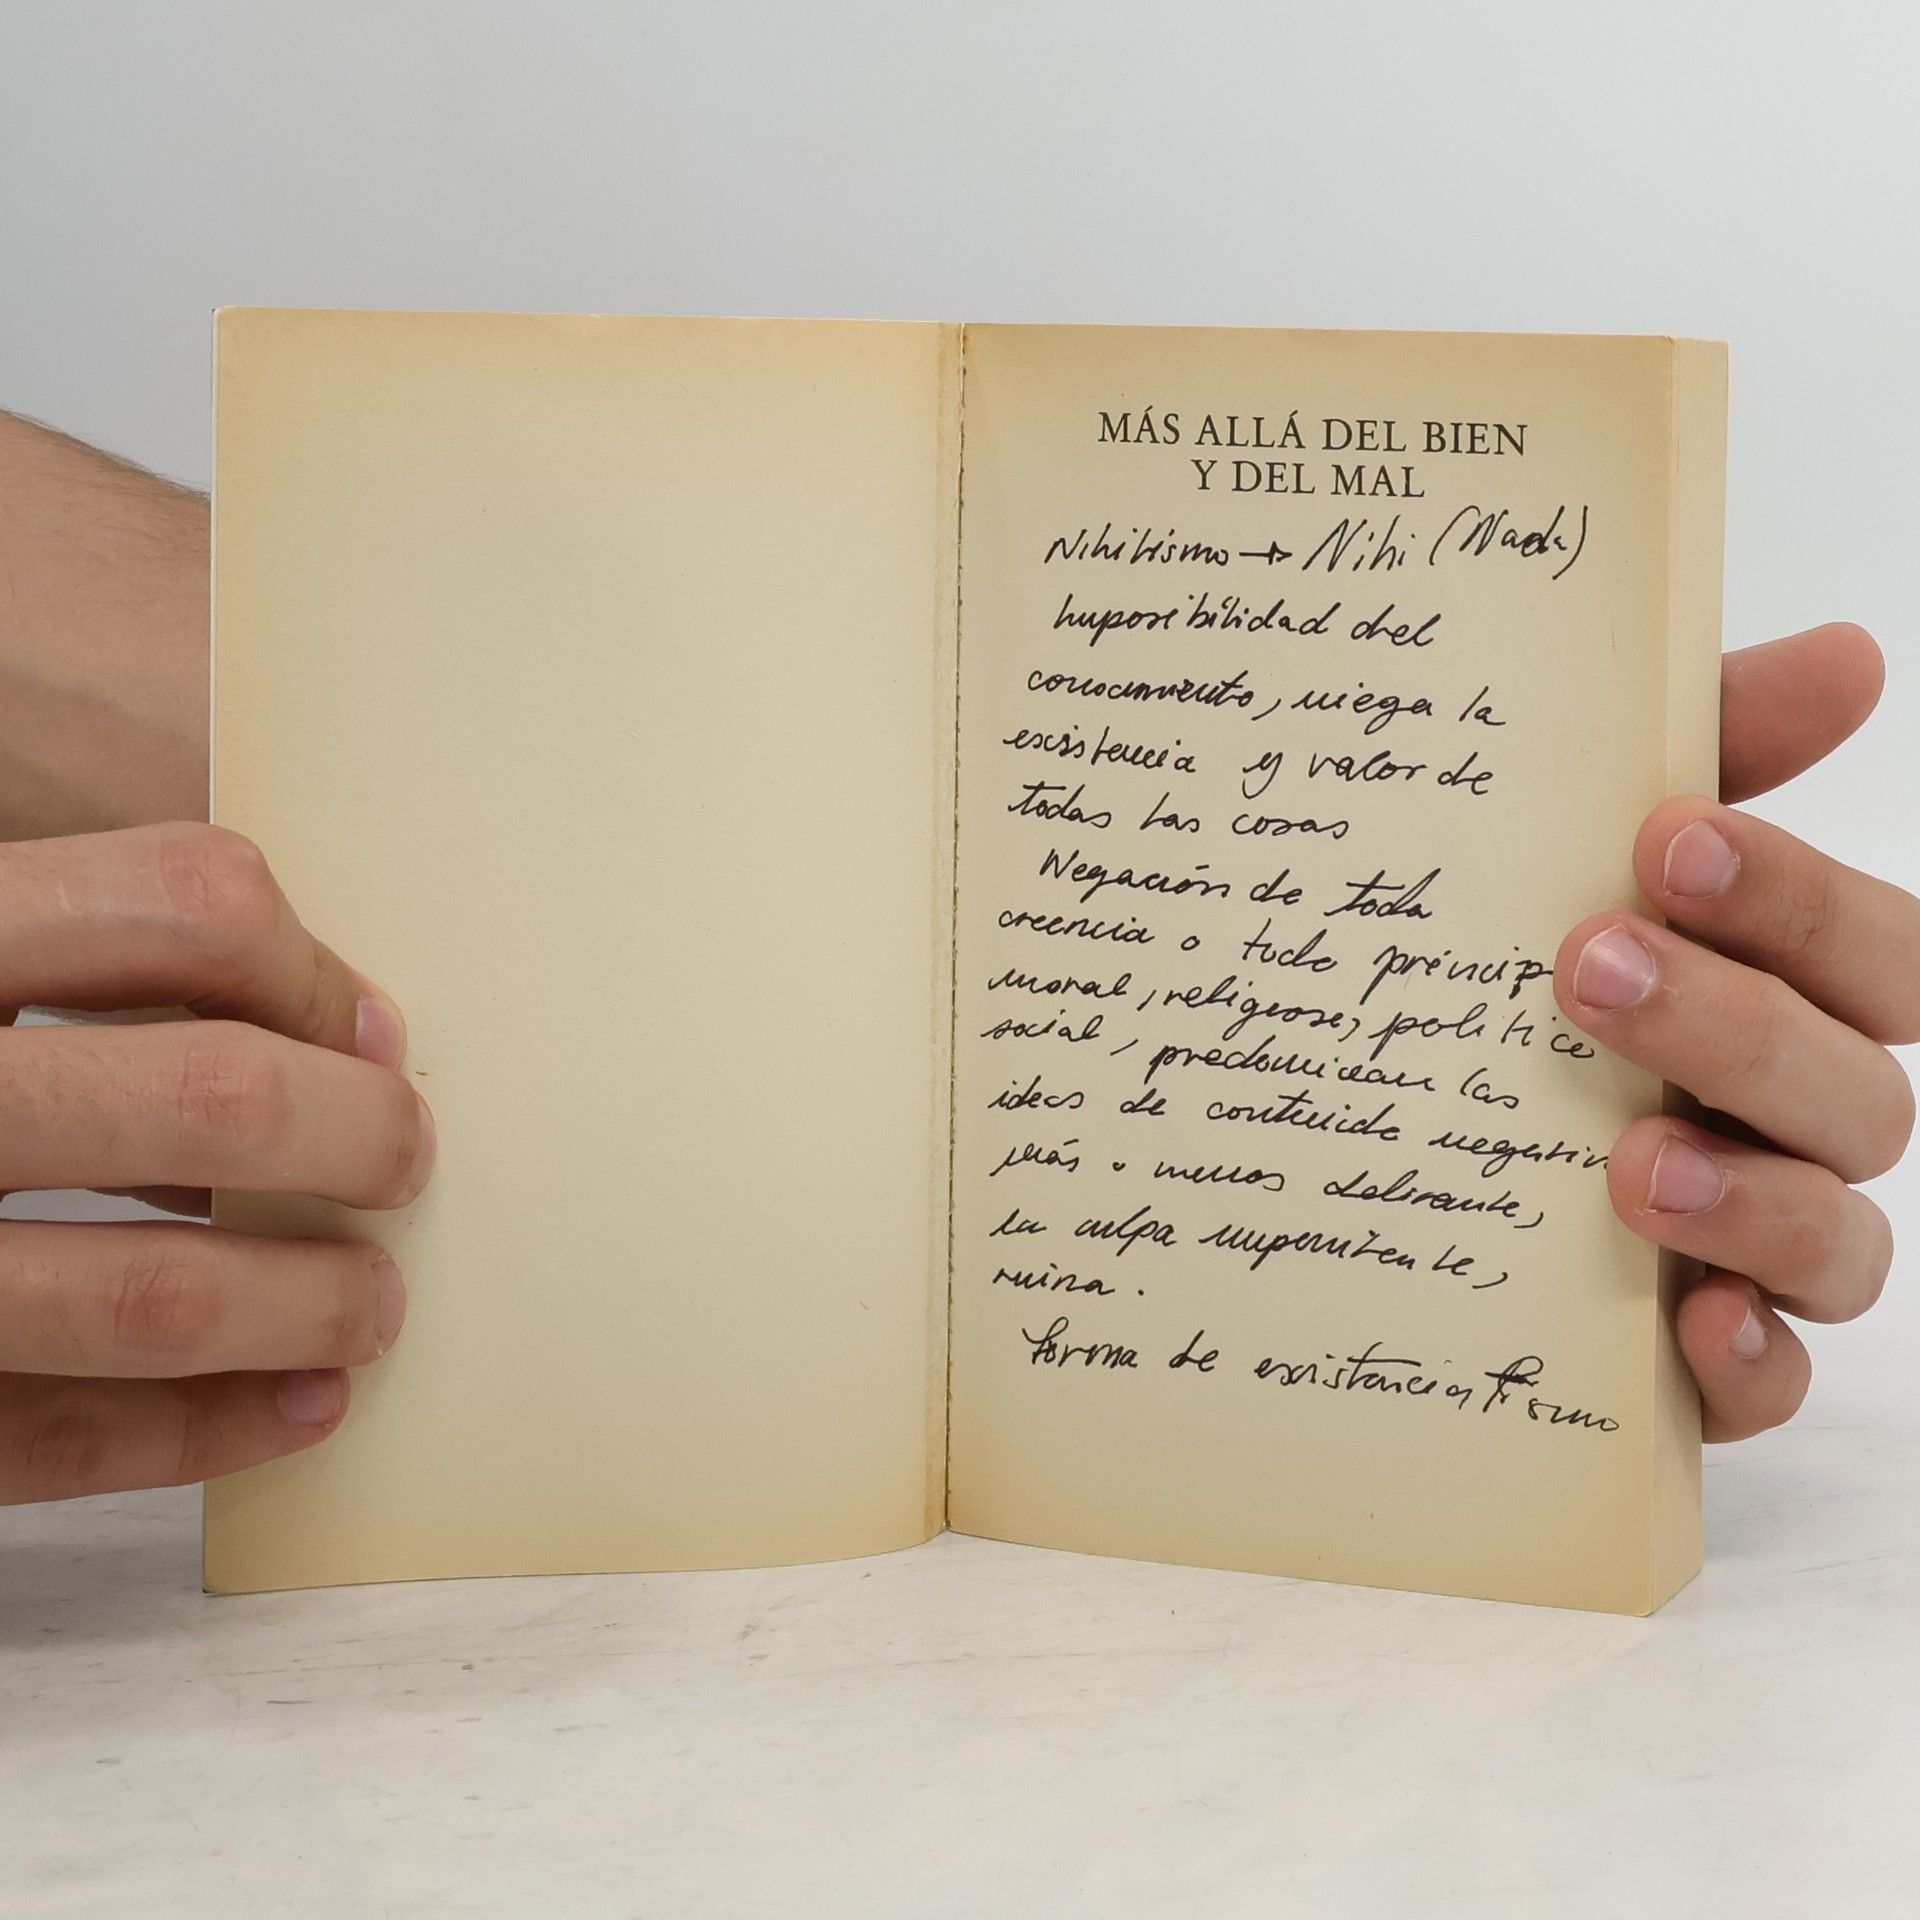 MÁS ALLÁ DEL BIEN
Y DEL MAL
Nihilismo → Nihi (Nada)
Imposibilidad del
conocimiento, niega la
existencia y valor de
todas las cosas
Negación de toda
creencia o todo princip
moral, religioso, politico
social, predominan las
ideas de contenido negativ
más o menos delirante,
la culpa impenitente,
ruina.
forma de existencia